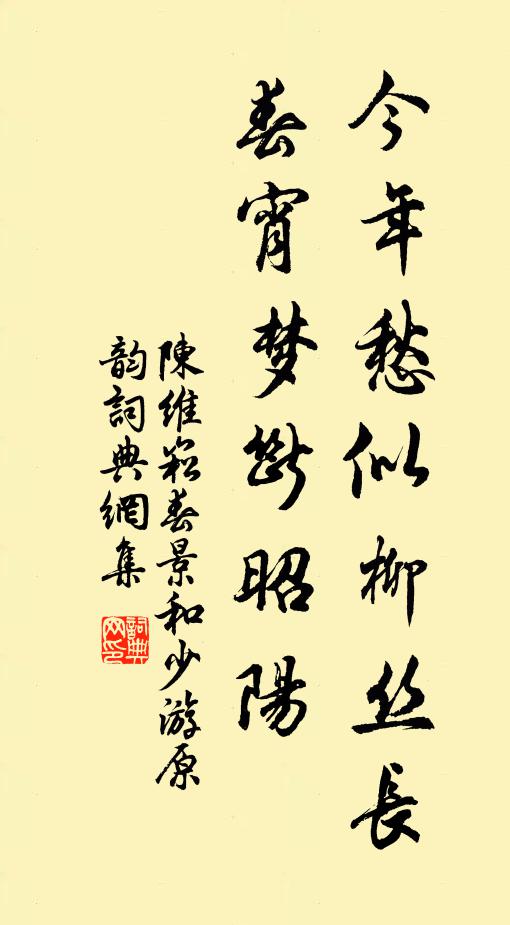 今年愁似柳丝長
春宵梦斷昭陽
陳維崧春景和少游原
韵詞典網集
詞典
网印